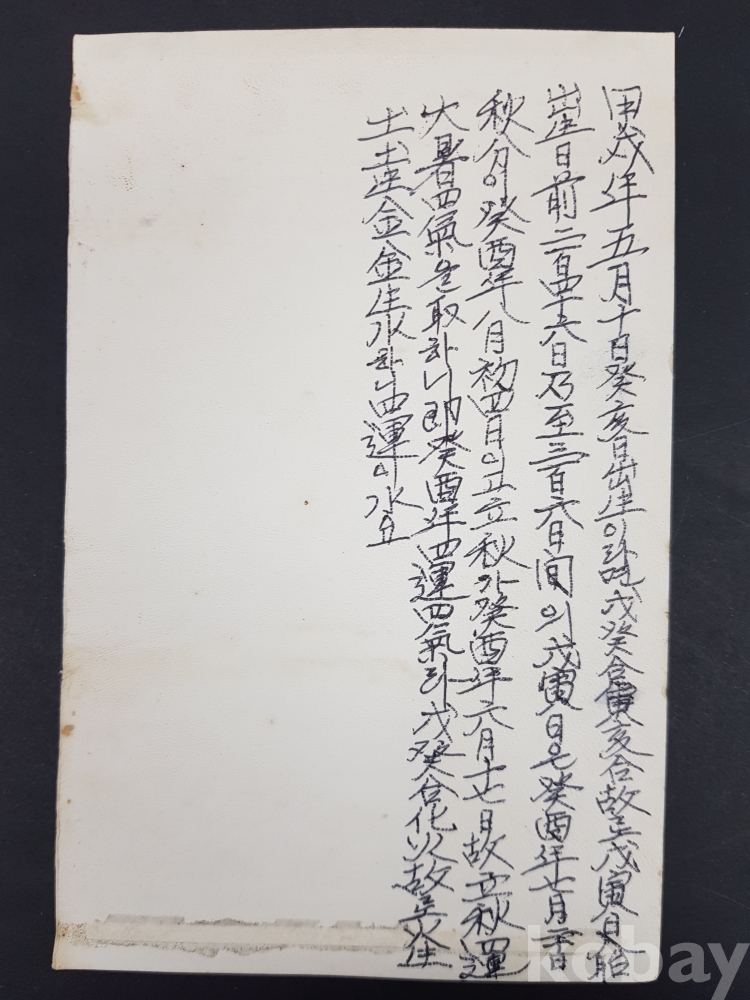 甲戌年五月十日癸亥日出生이라면戊癸合寅亥合故로戊寅日胎
出生日前二百四十六日乃至三百六日間이戊寅日은癸酉年七月二十日
秋分이癸酉年八月初四日이고立秋가癸酉年六月十七日故立秋四運
大暑四氣을取하니即癸酉年四運四氣라戊癸合化火故로火生
土土生金金生水하니四運이水요
kobay